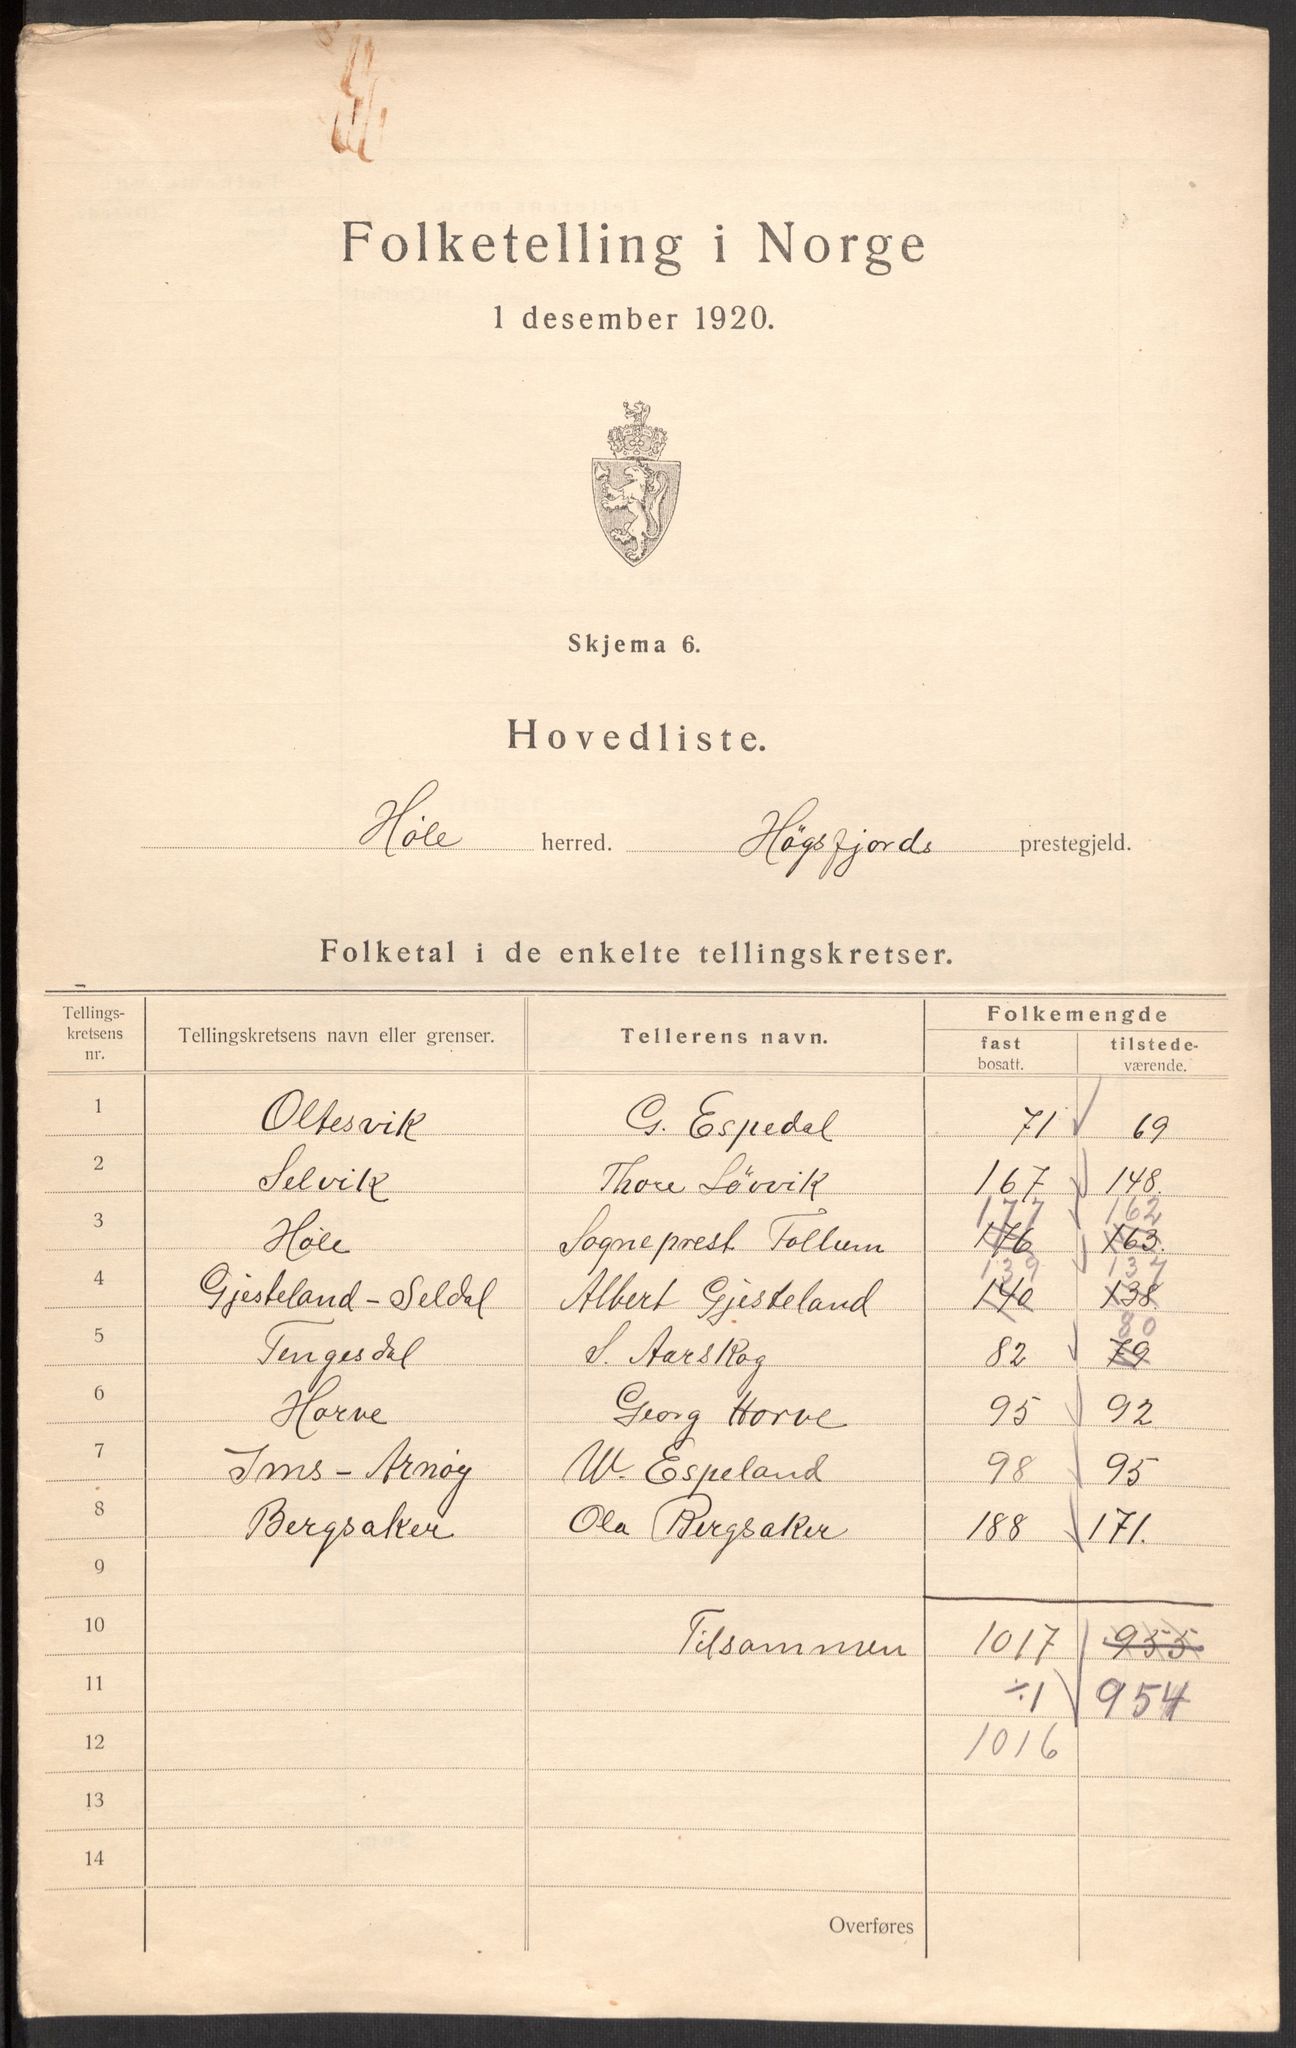 Folketelling i Norge
1 desember 1920.
Skjema 6.
Hovedliste.
Høle herred. Høgsfjords prestegjeld.
Folketal i de enkelte tellingskretser.
Tellings-kretsens nr. Tellingskretsens navn eller grenser. Tellerens navn. Folkemengde
fast bosatt. tilstede-værende.
1 Oltesvik G. Espedal 71 69
2 Selvik Thore Løvvik 167 148.
177 162
3 Høle Sogneprest Follum 176 163.
139 137
4 Gjesteland - Seldal Albert Gjesteland 140 138
80
5 Tengesdal S. Aarskog 82 79
6 Horve Georg Horve 95 92
7 Ims - Arnøy W. Espeland 98 95
8 Bergsaker Ola Bergsaker 188 171.
9
10 Tilsammen 1017 955
11 ÷1 954
12 1016
13
14
Overføres